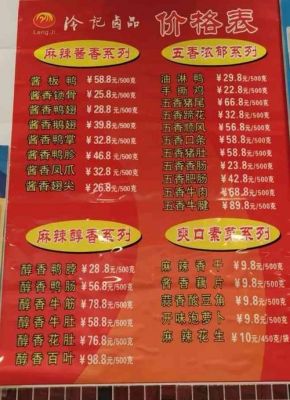 冷记卤品 价格表
Lang.Ji
麻辣酱香系列
酱板鸭 ¥58.8元/500克
酱香锁骨 ¥25.8元/500克
酱香鸭翅 ¥28.8元/500克
酱香鹅翅 ¥39.8元/500克
酱香鸭掌 ¥32.8元/500克
酱香鸭胗 ¥46.8元/500克
酱香凤爪 ¥32.8元/500克
酱香翅尖 ¥26.8元/500克
五香浓郁系列
油淋鸭 ¥29.8元/500克
手撕鸡 ¥22.8元/500克
五香猪尾 ¥66.8元/500克
五香蹄花 ¥32.8元/500克
五香顺风 ¥56.8元/500克
五香口条 ¥58.8元/500克
五香猪肚 ¥58.8元/500克
五香香肠 ¥23.8元/500克
五香肥肠 ¥42.8元/500克
五香牛肉 ¥68.8元/500克
五香牛腱 ¥89.8元/500克
麻辣醇香系列
醇香鸭脖 ¥28.8元/500克
醇香鸭肠 ¥56.8元/500克
醇香牛筋 ¥78.8元/500克
醇香牛肚 ¥58.8元/500克
醇香花肚 ¥76.8元/500克
醇香百叶 ¥98.8元/500克
爽口素菜系列
麻辣香干 ¥9.8元/500克
酱香藕片 ¥9.8元/500克
酸豆角 ¥9.8元/500克
开味泡萝卜 ¥9.8元/500克
麻辣花生 ¥10元/450克/袋